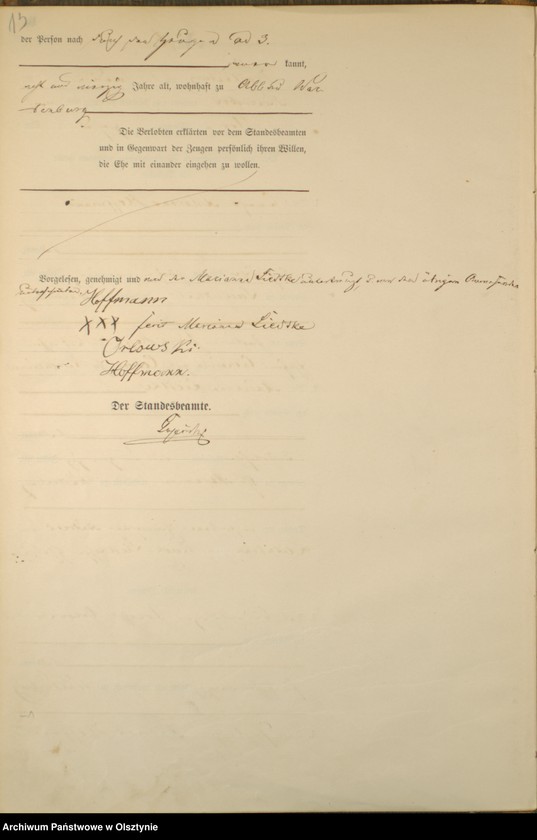 13
der Person nach durch den Zeugen ad 3.
kannt,
acht und vierzig Jahre alt, wohnhaft zu Abbau War
tenburg
Die Verlobten erklärten vor dem Standesbeamten
und in Gegenwart der Zeugen persönlich ihren Willen,
die Ehe mit einander eingehen zu wollen.
Vorgelesen, genehmigt und von der Marianna Liedtke unterkreuzt, von den übrigen
unterschrieben.
Hoffmann
XXX Marianna Liedtke
Orlowski.
Hoffmann.
Der Standesbeamte.
Archiwum Państwowe w Olsztynie